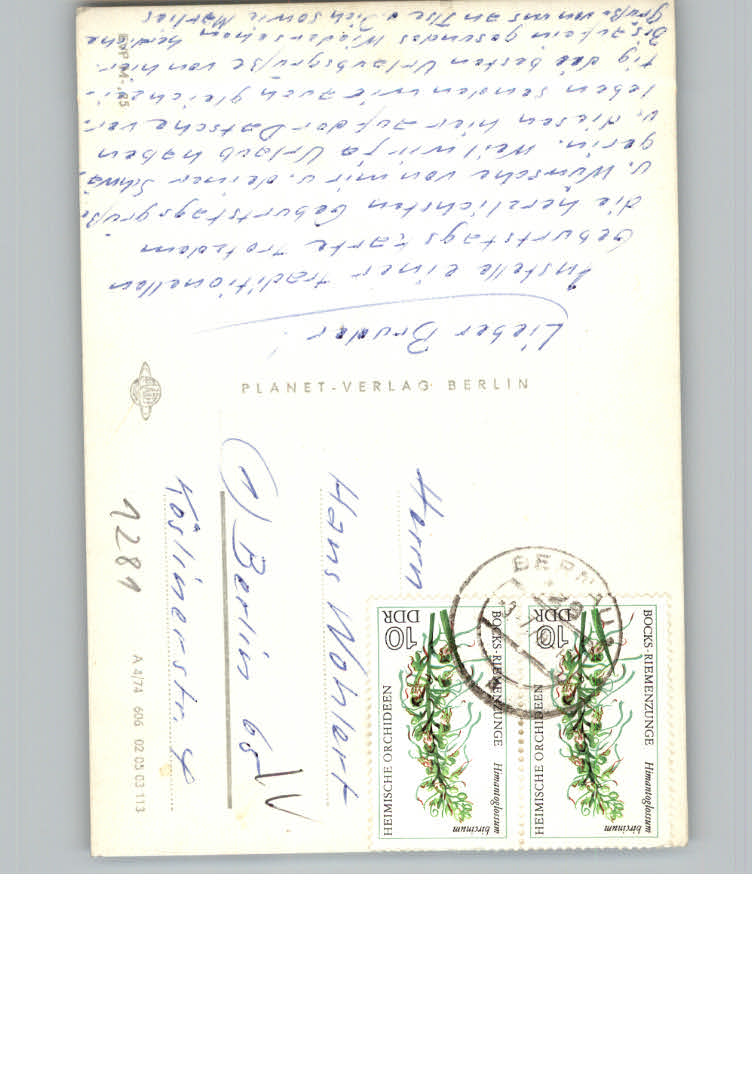 Lieber Bruder!
Anstelle einer traditionellen
Geburtstagskarte trotzdem
die herzlichsten Geburtstagsgrüße
u. Wünsche von mir u. deiner Schwä-
gerin. Weil wir ja Urlaub haben
u. diesen hier auf der Datsche ver-
leben senden wir auch gleichzei-
tig die besten Urlaubsgrüße von hier.
Bis auf ein gesundes Wiedersehen herzliche
Grüße von uns an Ilse u. Dich sowie Marlies
PLANET-VERLAG BERLIN
Herrn
Hans Wohlert
(1) Berlin 65
Köslinerstr. 4
1281
A 4/74 606 02 05 03 113
BERNAU
HEIMISCHE ORCHIDEEN
BOCKS-RIEMENZUNGE Himantoglossum
bircinum
10
DDR
HEIMISCHE ORCHIDEEN
BOCKS-RIEMENZUNGE Himantoglossum
bircinum
10
DDR